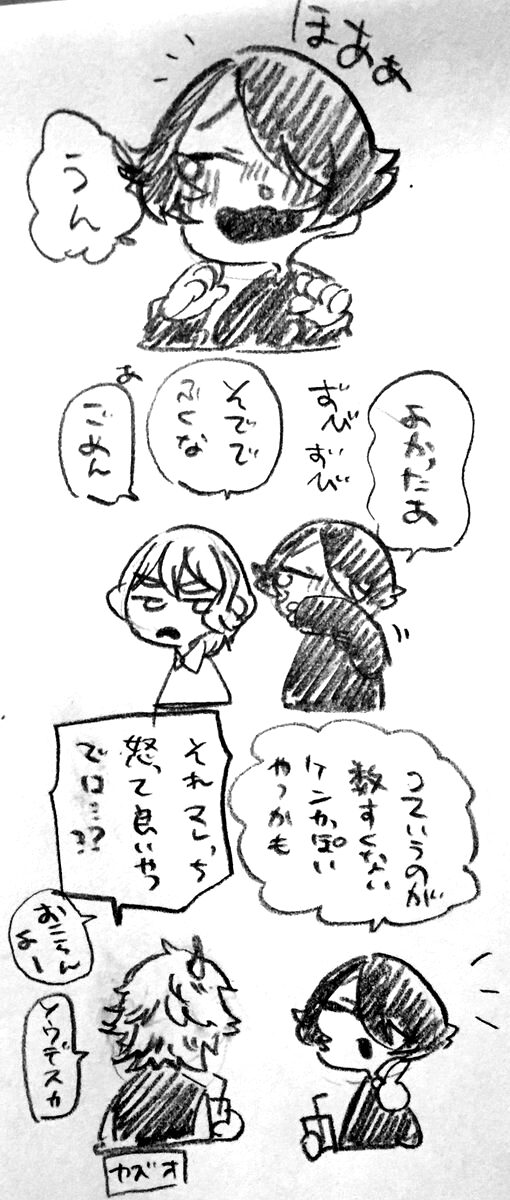 ほあぁ
うん
よかったあ
ずび
ずび
そでで
ふくな
あ
ごめん
っていうのが
数すくない
ケンカっぽい
やつかも
それマしっち
怒って良いやつ
でロ…??
おこんよー
ソウデスカ
カズオ